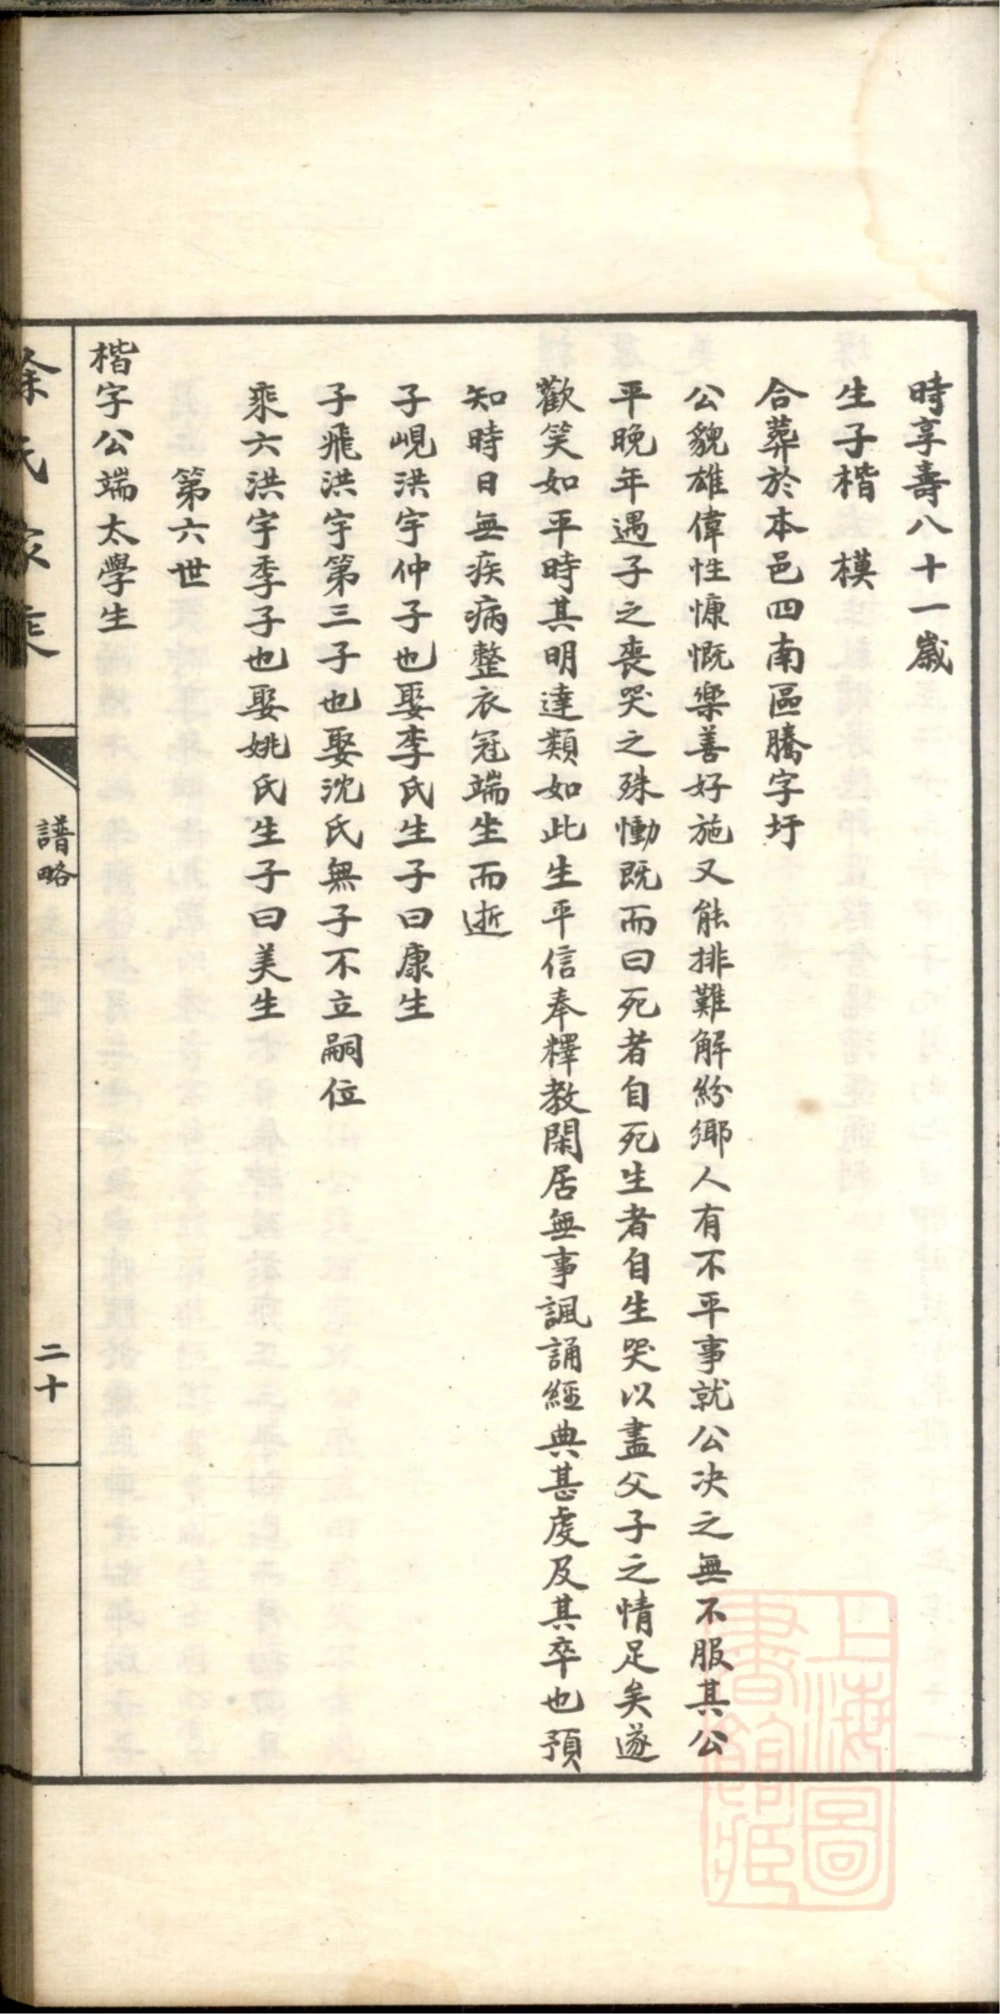 時享壽八十一歲
生子楷　模
合葬於本邑四南區騰字圩
公貌雄偉性慷慨樂善好施又能排難解紛鄉人有不平事就公決之無不服其公
平晚年遇子之喪哭之殊慟既而曰死者自死生者自生哭以盡父子之情足矣遂
歡笑如平時其明達類如此生平信奉釋教閑居無事諷誦經典甚虔及其卒也預
知時日無疾病整衣冠端坐而逝
子峴洪宇仲子也娶李氏生子曰康生
子飛洪宇第三子也娶沈氏無子不立嗣位
乘六洪宇季子也娶姚氏生子曰美生
第六世
楷字公端太學生
徐氏家乘
譜略
二十
上海圖書館藏